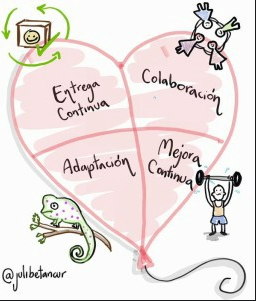 Entrega
Continua
Colaboración
Adaptación
Mejora
Continua
@julibetancur